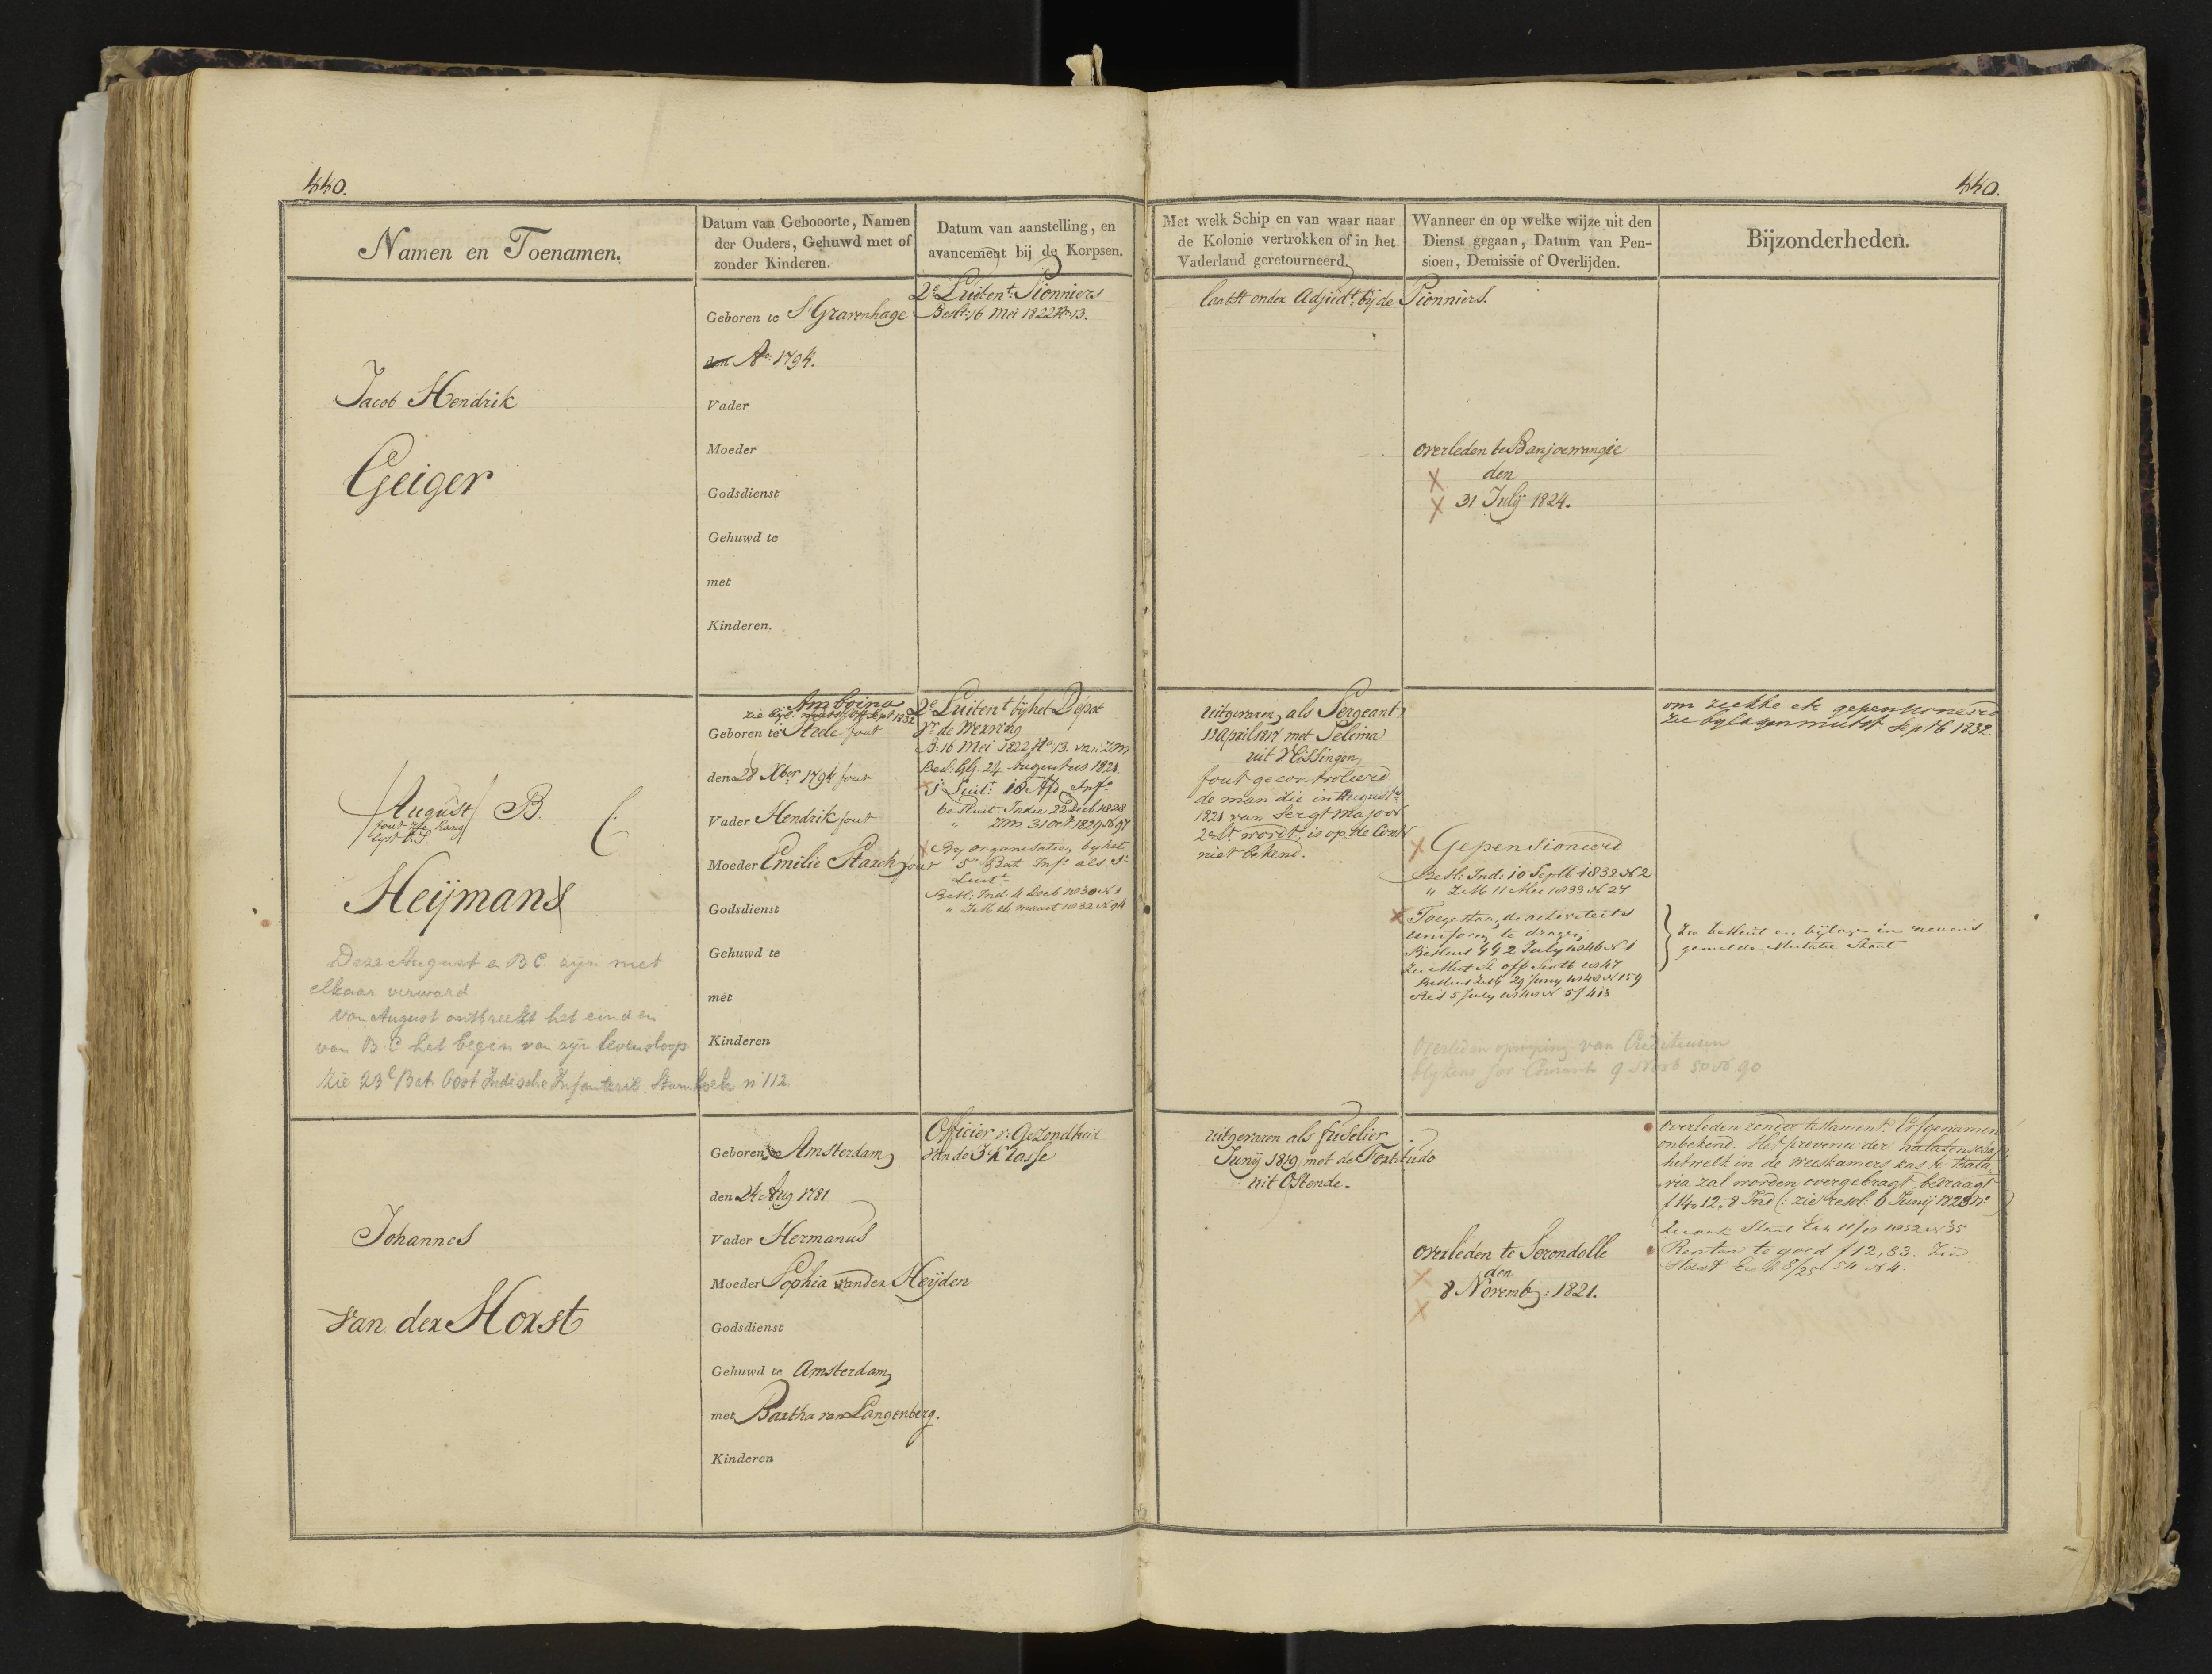 440.
440.
Namen en Toenamen.
Datum van Gebooorte, Namen
der Ouders, Gehuwd met of
zonder Kinderen.
Datum van aanstelling, en
avancement bij de Korpsen.
Met welk Schip en van waar naar
de Kolonie vertrokken of in het
Vaderland geretourneerd.
Wanneer en op welke wijze uit den
Dienst gegaan, Datum van Pen-
sioen, Demissie of Overlijden.
Bijzonderheden.
Jacob Hendrik
Geiger
Geboren te S Gravenhage
den Ao. 1794.
Vader
Moeder
Godsdienst
Gehuwd te
met
Kinderen.
2e Luitent: Pionniers
Beslt: 16 Mei 1822 No 13.
laatst onder Adjudt: bij de Pionniers.
overleden te Banjoewangie
den
31 Julij 1824.
August B. C.
fout zie Rang
lijst O.I.
Heijmans
Deze August en B C zijn met
elkaar verward
Van August ontbreekt het eind en
van B. C het begin van zijn levensloop
Zie 23e Bat Oost Indische Infanterie Stamboek no 112
Amboina
zie Bijl: mutst: off Sept 1832
Geboren te Stede fout
den 28 Xber 1794 fout
Vader Hendrik fout
Moeder Emilie Starch fout
Godsdienst
Gehuwd te
met
Kinderen
2e Luitent bij het Depot
vr de Werving
B: 16 Mei 1822 No 13. van ZM
Besl: GG. 24 Augustus 1821.
1e Luit: 18 Afd Infe
besluit Indie 22 Decb 1828
" ZM 31 Oct. 1829 N 97
By organisatie, by het
5e Bat Infe als 1e
Luitt
Besl: Ind 4 Decb 1830 N 1
" ZM 16 maart 1832 N 94
uitgevaren, als Sergeant
12 April 1817 met Selima
uit Vlissingen
fout gecontroleerd
de man die in Augusts
1821 van Sergt Majoor
2e Lt wordt, is op de Contr
niet bekend.
Gepensioneerd
Besl: Ind: 10 Septb 1832 N 2
" ZM 11 Mei 1833 N 27
Toegestaan, de activiteits
uniform te dragen;
Besluit GG 2 July 1846 N 1
Zie Mut St off Septb 1847
Besluit ZM 29 Juny 1848 N 159
Res 5 July 1848 N 5/413
Overleden oproeping van Crediteuren
blykens Jav Courant 9 Novb 50 N 90
om ziekte etc gepensioneerd
zie bylagen mutst: Sept 6 1832
Zie besluit en bijlagen in nevens
gemelde Mutatie Staat
Johannes
van der Horst
Geboren te Amsterdam
den 24 Aug 1781
Vader Hermanus
Moeder Sophia van der Heijden
Godsdienst
Gehuwd te Amsterdam
met Bartha van Langenberg.
Kinderen
Officier v: Gezondheid
van de 3e Klasse
uitgevaren als fuselier
Junij 1819 met de Fortitudo
uit Ostende.
overleden te Serondolle
den
8 Novemb: 1821.
overleden zonder testament. Erfgenamen
onbekend. Het provenu der nalatenschap
hetwelk in de weeskamers kas te Bata-
via zal worden overgebragt, bedraagt
f 14.12.8 Ind (: zie resol: 6 Junij 1828 No
Zie ook Staat Lab 11/10 1852 N 35
Renten te goed f 12,83. Zie
Staat 8/25 54 N 4.